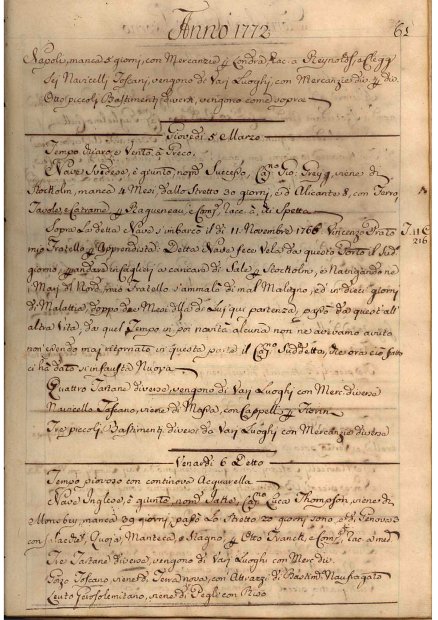 Anno 1772
61
Napoli, manca 5 giorni, con Mercanzie p Londra, Rac. a Reynolds, e Clegg
Sei Navicelli Toscani, vengono di Varj Luoghi, con Mercanzie div. p div.
Otto piccoli Bastimenti diversi, vengono come sopra
Giovedì 5 Marzo
Tempo chiaro, e Vento à Greco,
Nave Svedese, è giunto, nom. Successo, Cap.no Gio. Greyg, viene di
Stockolm, manca 4 Mesi, dallo Stretto 30 giorni, e d'Alicante 8, con Ferro,
Tavole, e Catrame, p Ragueneau, e Comp. Race. à, di Spetta
Sopra La detta Nave s'imbarcò il dì 11. Novembre 1766 Vincenzo Prato
mio Fratello p Apprendista. Detta Nave fece Vela da questo Porto il Sud.
giorno, p andare in Cagliari a caricare di Sale p Stockolm, e Navigando ne
i Mari di Nord, mio Fratello s'ammalò di mal Maligno, ed in dieci giorni
di Malattia, doppo due Mesi della di Lui qui partenza, passò da questa all'
altra Vita, da quel Tempo in poi novità alcuna non ne avevamo avuta
non essendo mai ritornato in questa parte il Cap.no Suddetto, che ora ciò fatto
ci ha dato sì infausta Nuova
Quattro Tartane diverse, vengono di Varj Luoghi con Merc. diverse
Navicello Toscano, viene di Massa, con Cappelli p Fiorin
Tre piccoli Bastimenti diversi da Varj Luoghi con Mercanzie diverse
Venardì 6 Detto
Tempo piovoso con continova Acquarella
Nave Inglese, è giunto, nom. Cap.no Luca Thompson, viene di
manca 39 giorni, passò Lo Stretto 20 giorni sono,
con Quoja, Manteca, e Stagno p Otto Franck, e Comp.
Tre Tartane diverse, vengono di Varj Luoghi con Merc. div.
Gozo Toscano, viene di Terra nova, con Attrazzi di Bastim. Naufragato
Leuto Gerosolemitano, viene di Pegli con Riso